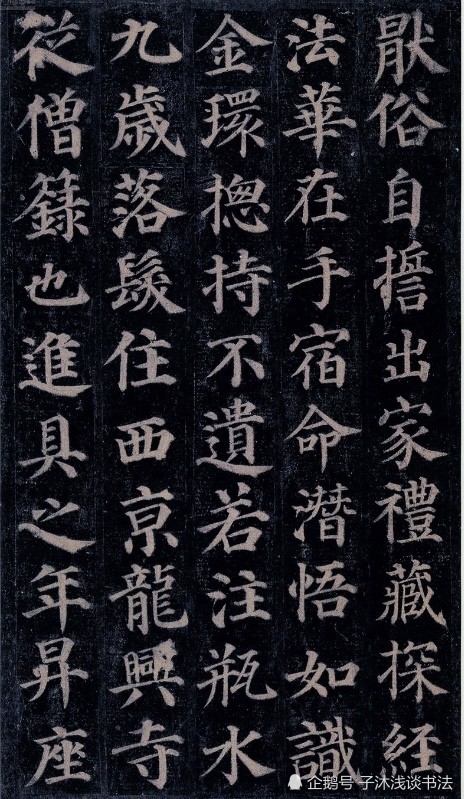 猒俗自誓出家禮藏探經
法華在手宿命潛悟如識
金環揔持不遺若注瓶水
九歲落髮住西京龍興寺
從僧籙也進具之年昇座
企鹅号 子沐浅谈书法